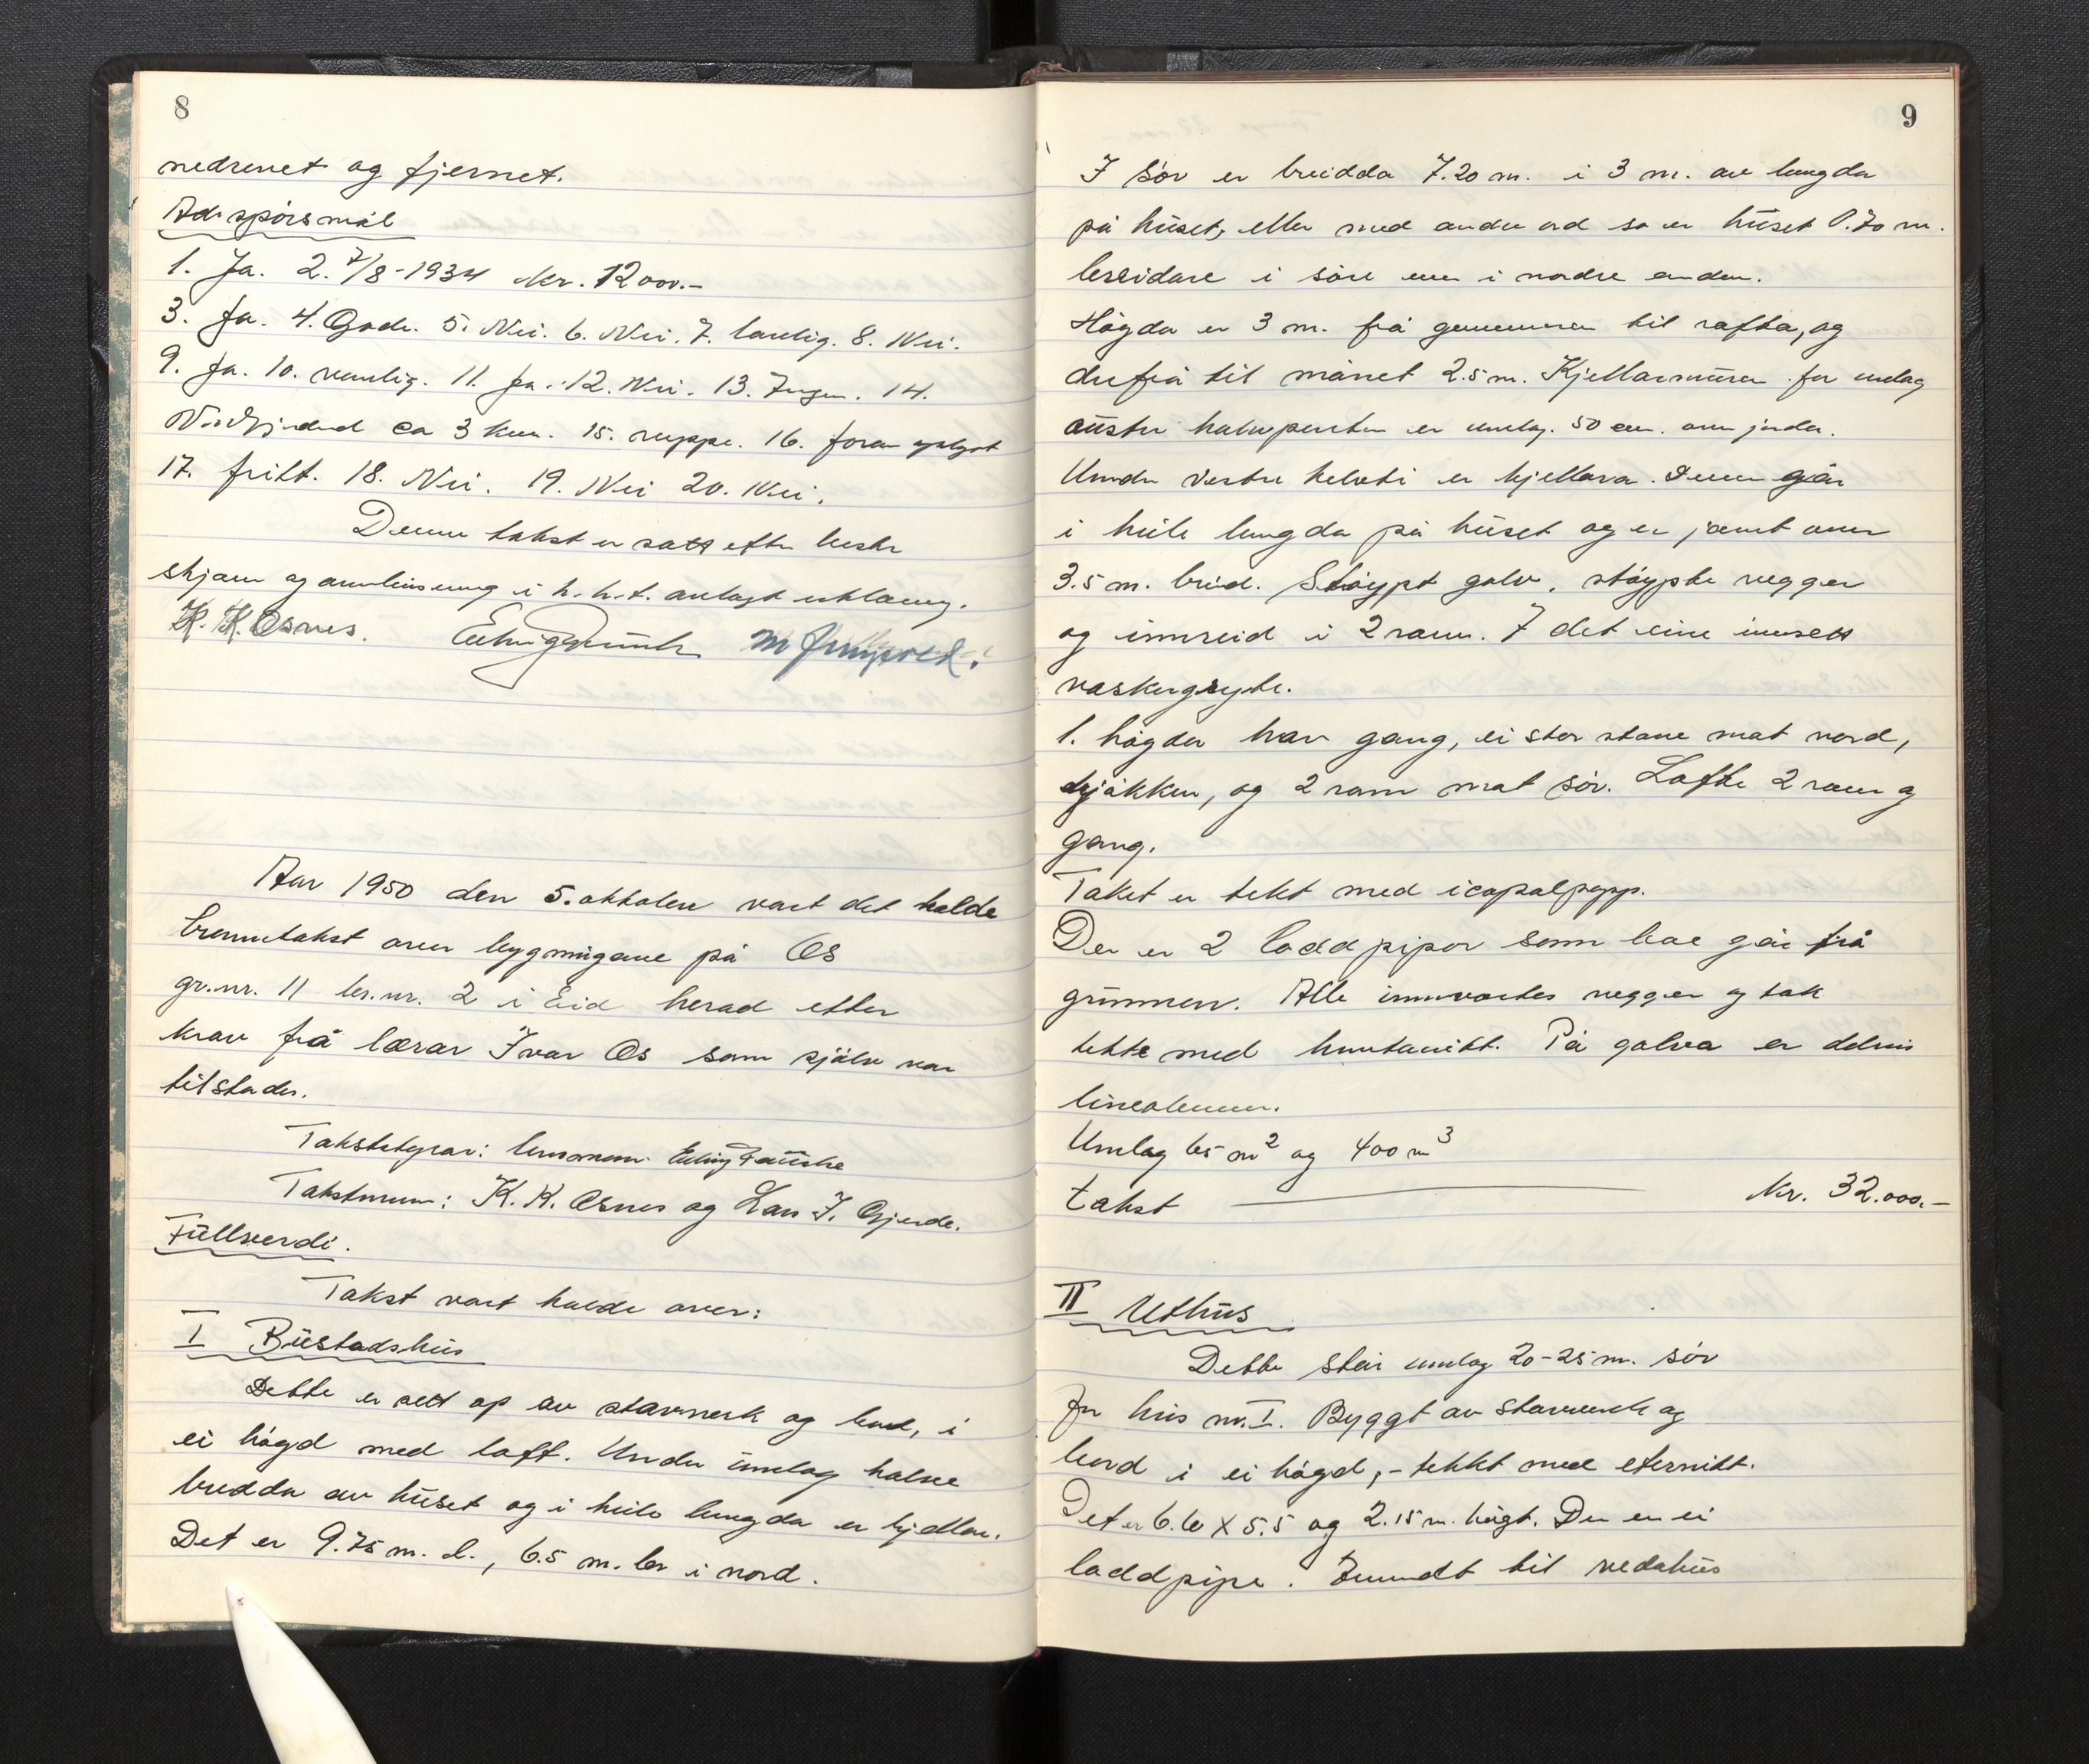 8
nedrevet og fjernet.
Ad. spörsmål
1. Ja. 2. 7/8-1934 Kr. 12000.-
3. Ja. 4. Gode. 5. Nei. 6. Nei. 7. 8. Nei.
9. Ja. 10. vanlig. 11. Ja. 12. Nei. 13. Ingen. 14.
Nordfjordeid ca 3 km. 15. 16. foran
17. fritt. 18. Nei. 19. Nei 20. Nei.
Denne takst er satt efter beste
skjønn og overbevisning i h.h.t. avlagt erklæring.
K. K. Osnes.
Aar 1950 den 5. oktober vart det halde
branntakst over bygningane på Os
gr.nr. 11 br.nr. 2 i Eid herad etter
krav frå lærar Ivar Os som sjölv var
tilstades.
Takststyrar: lensmann Fauske
Takstmenn: K. K. Osnes og Lars J. Gjerde.
Fullverdi.
Takst vart halde over:
I Bustadshus
Dette er sett op av stavverk og bord, i
ei högd med loft. Under umlag halve
bredda av huset og i heile lengda er kjellar.
Det er 9.75 m. l., 6.5 m. br i nord.
9
I Sör er breidda 7.20 m. i 3 m. av lengda
på huset, eller med andre ord so er huset 0.70 m.
breidare i söre enn i nordre enden.
Högda er 3 m. frå grunnmuren til rafta, og
derfrå til mönet 2.5 m. Kjellarmuren for umlag
austre halvparten er umlag. 50 cm. over jorda.
Under vestre helvti er kjellara. Denne går
i heile lengda på huset og er jamt over
3.5 m. breid. Stöypt golv, stöypte vegger
og innreid i 2 rom. I det eine innsett
vaskegryte.
1. högda har gang, ei stor stove mot nord,
kjökken, og 2 rom mot sör. Lofte 2 rom og
gang.
Taket er tekt med icopalpapp.
Der er 2 loddpipor som bae går frå
grunnen. Alle innvortes vegger og tak
tekte med huntonitt. På golva er delvis
linoleum.
Umlag 65 m2 og 400 m3
takst Kr. 32.000.-
II Uthus
Dette står umlag 20-25 m. sör
for hus nr. I. Byggt av stavverk og
bord i ei högd, - tekkt med eternitt.
Det er 6.60 X 5.5 og 2.15 m. högt. Der er ei
loddpipe. Innreidt til vedahus